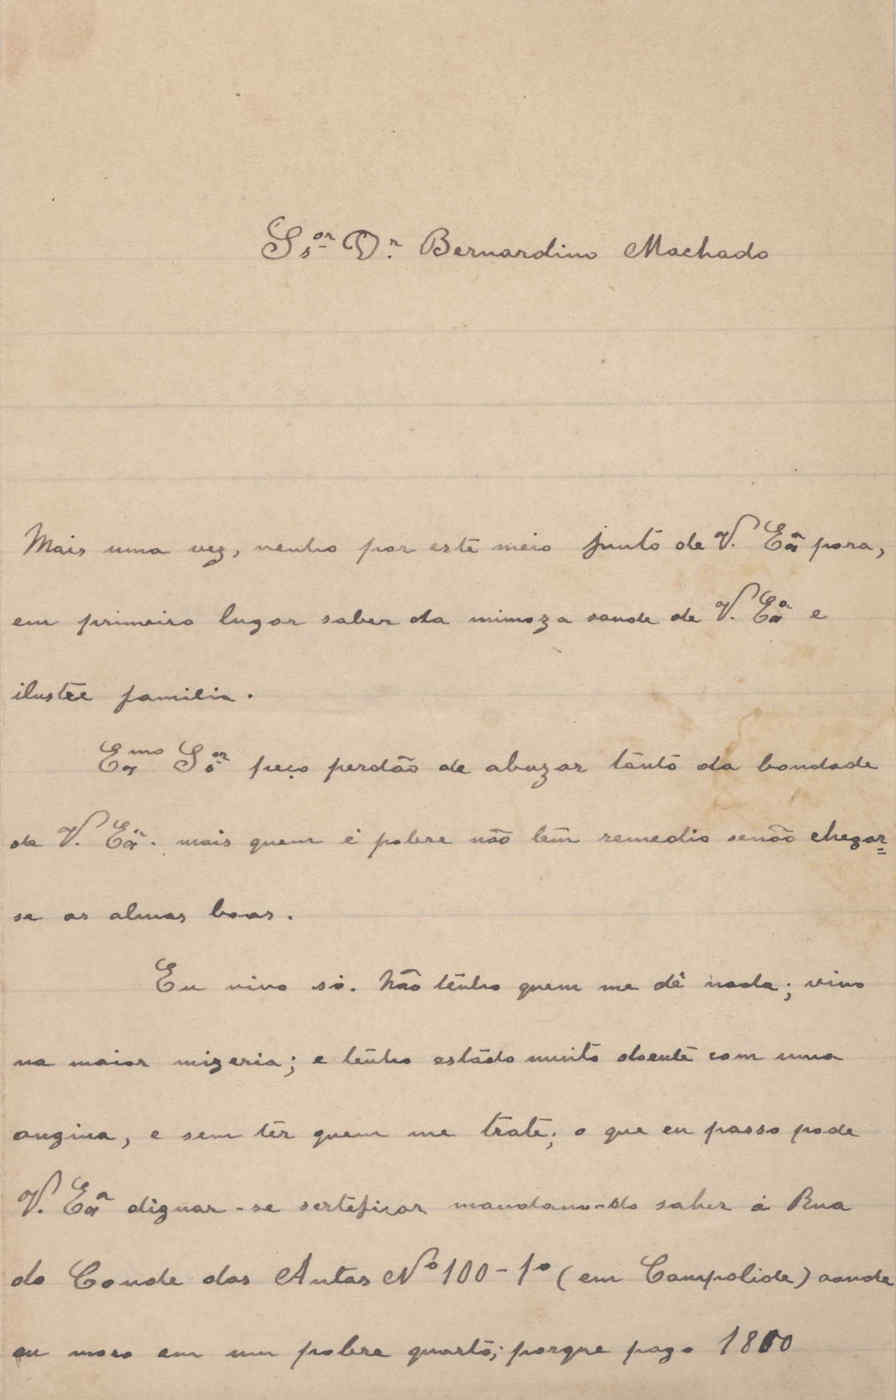 Ssor Dr. Bernardino Machado
Mais uma vez, venho por este meio junto de V. Exa para,
em primeiro lugar saber da mimoza saude de V. Exa e
ilustre familia.
Exmo Ssor peço perdão de abuzar tanto da bondade
de V. Exa. mais quem é pobre não têm remedio senão chegar=
se as almas boas.
Eu vivo só. Não tênho quem me dê nada; vivo
na maior mizeria; e tênho estádo muito doente com uma
angina, e sem têr quem me trate; o que eu passo pode
V. Exa dignar-se serteficar mandando saber á Rua
do Conde das Antas No 100-1o (em Campolide) aonde
eu moro em um pobre quarto; porque pago